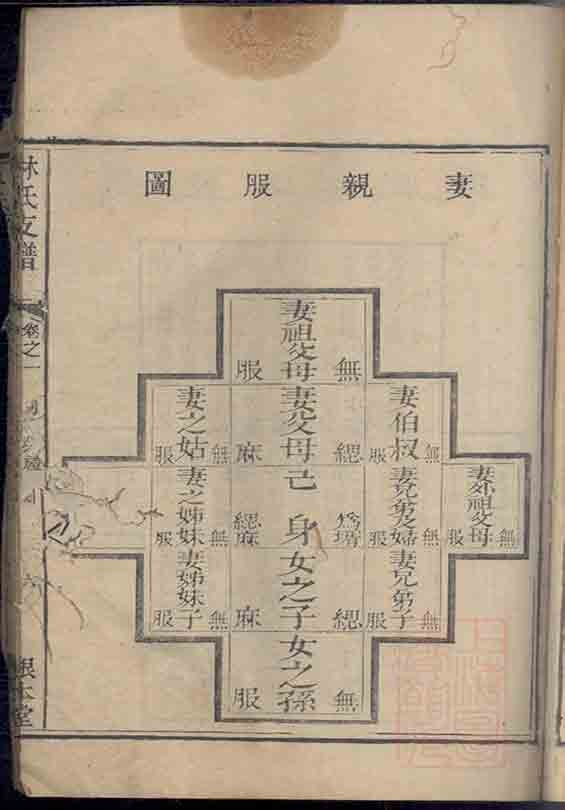 妻親服圖
妻外祖父母
無服
妻伯叔
無服
妻兄弟之婦
無服
妻兄弟子
無服
妻祖父母
無服
妻父母
緦麻
己身
為壻緦麻
女之子
緦麻
女之孫
無服
妻之姑
無服
妻之姊妹
無服
妻姊妹子
無服
林氏支譜
卷之一
六
根本堂